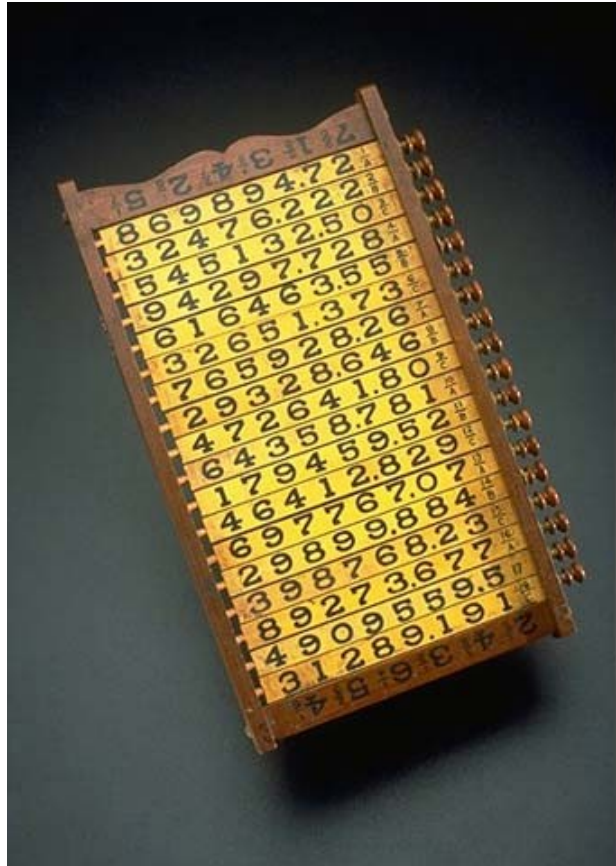 8 6 9 8 9 4.7 2
3 2 4 7 6.2 2 2
5 4 5 1 3 2.5 0
9 4 2 9 7.7 2 8
6 1 6 4 6 3.5 5
3 2 6 5 1.3 7 3
7 6 5 9 2 8.2 6
2 9 3 2 8.6 4 6
4 7 2 6 4 1.8 0
6 4 3 5 8.7 8 1
1 7 9 4 5 9.5 2
4 6 4 1 2.8 2 9
6 9 7 7 6 7.0 7
2 9 8 9 9.8 8 4
3 9 8 7 6 8.2 3
8 9 2 7 3.6 7 7
4 9 0 9 5 5 9.5
3 1 2 8 9.1 9 1